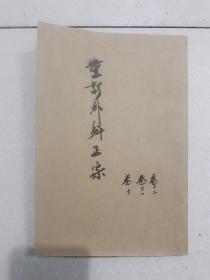 重訂外科正宗
卷十二
卷十一
卷十